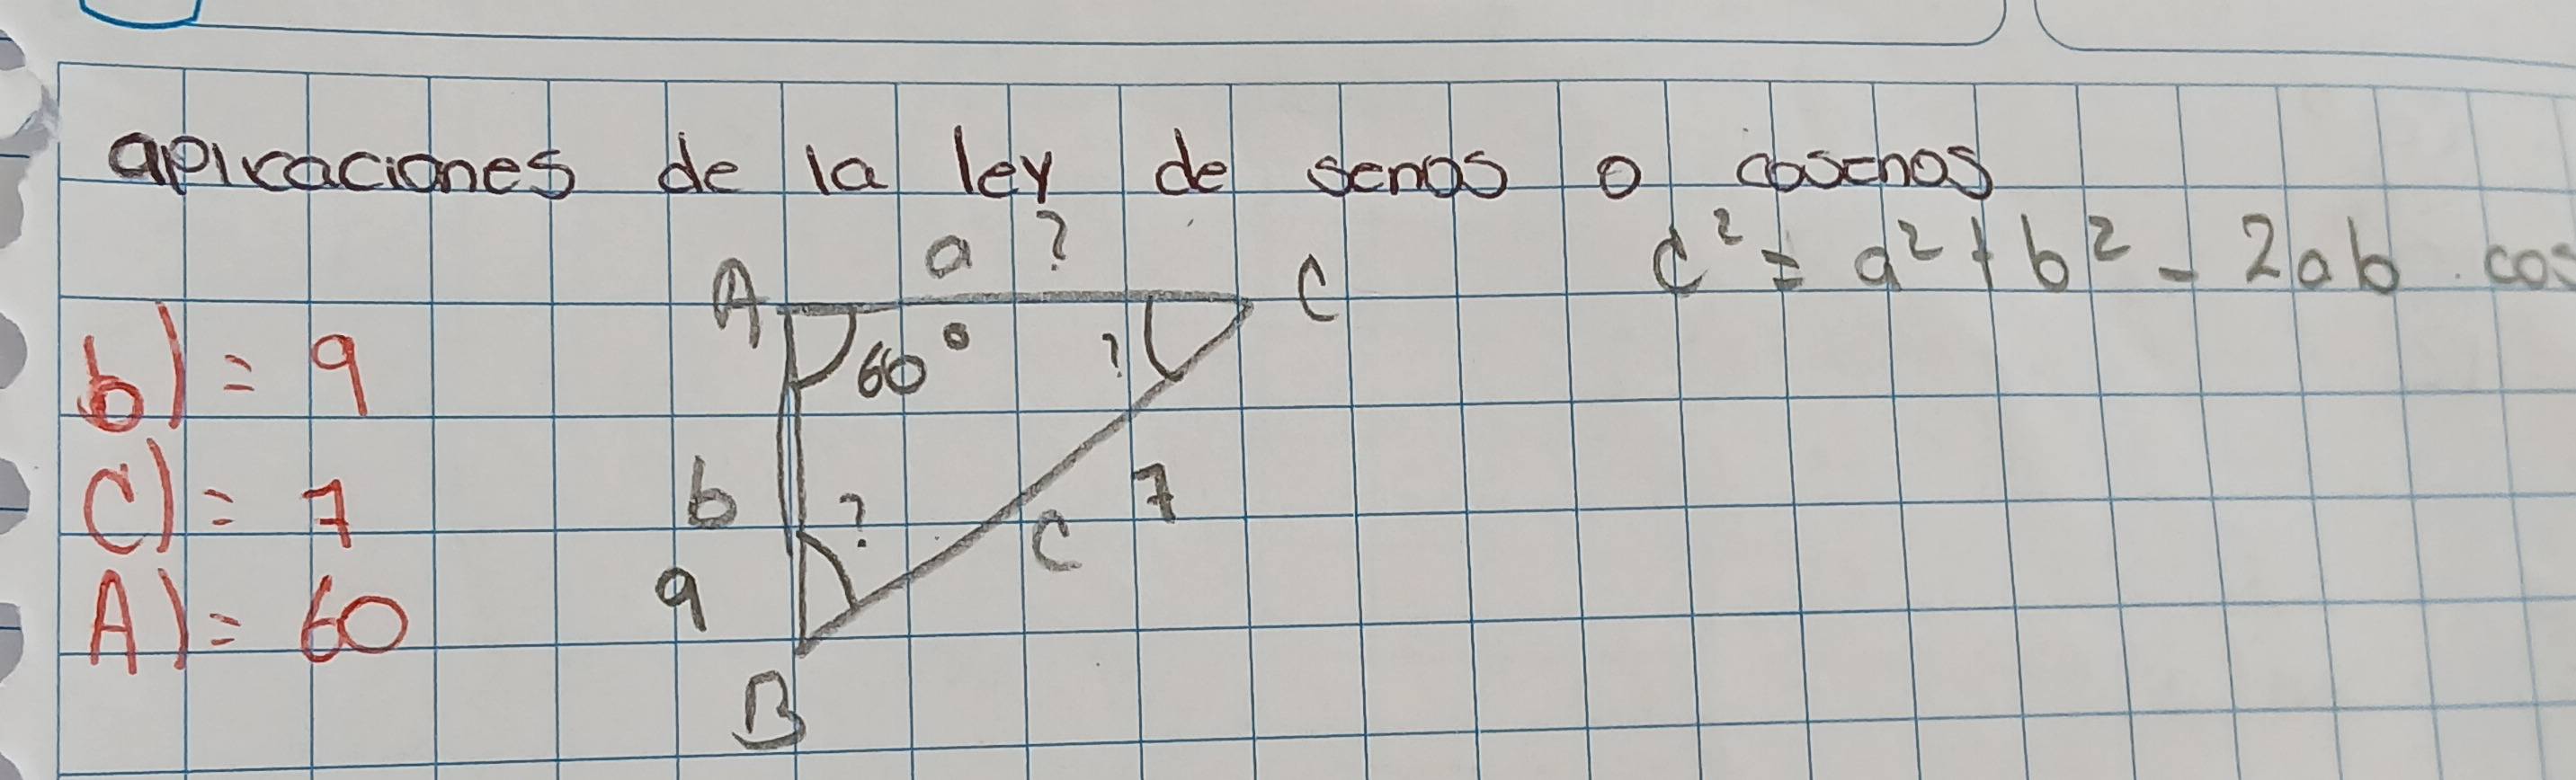 aplicaciones de la ley de senos o cosenos
a ?
c² = a² + b² - 2ab . cos
A
C
b) = 9
60°
?
C) = 7
b
?
7
C
A) = 60
9
B